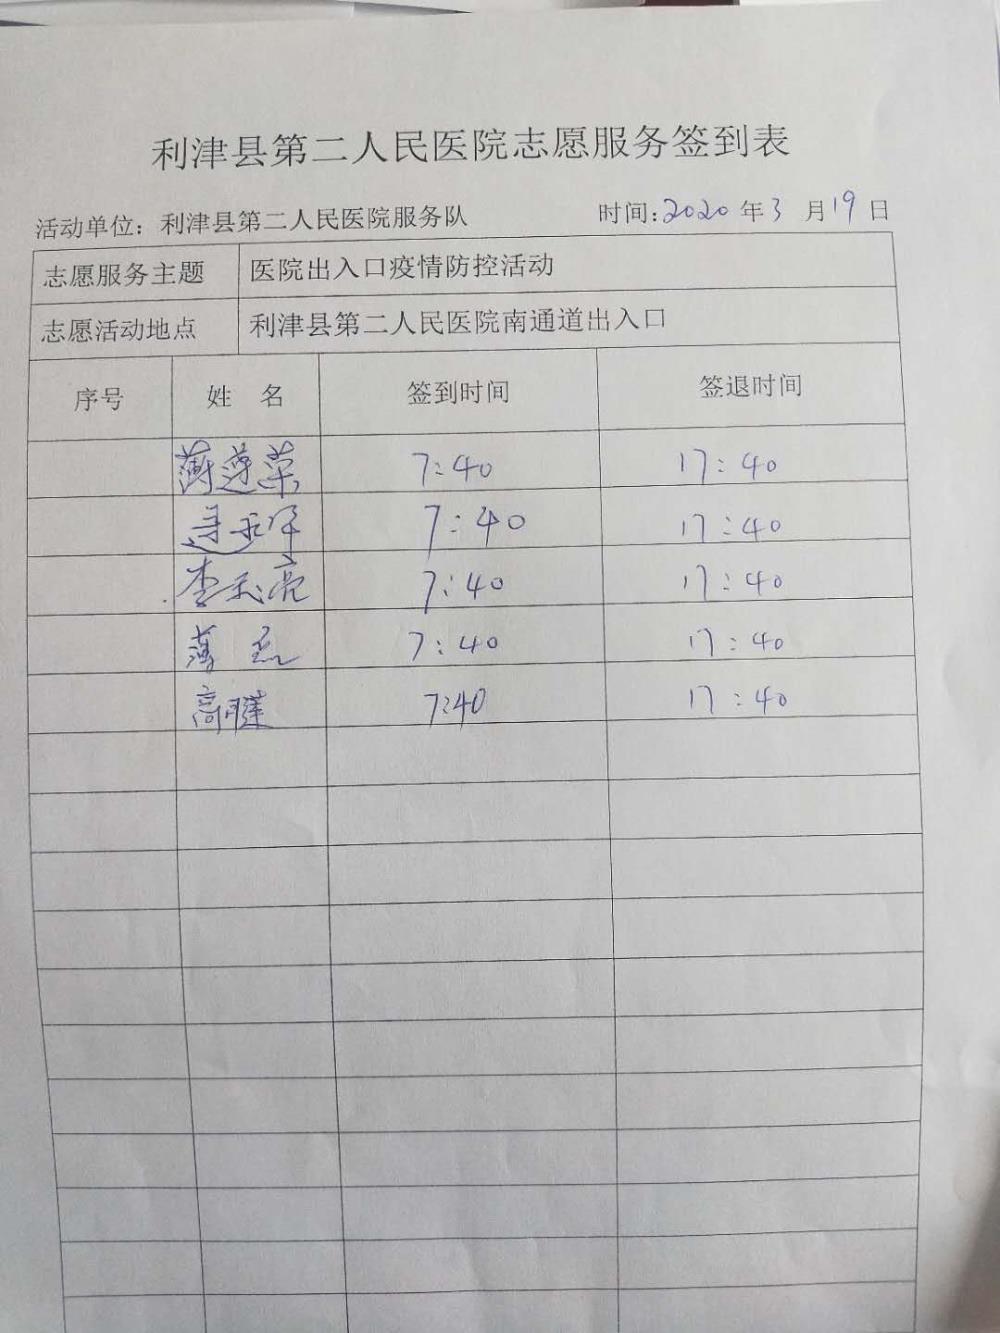 利津县第二人民医院志愿服务签到表
活动单位：利津县第二人民医院服务队 时间:2020 年 3 月 19 日
志愿服务主题 医院出入口疫情防控活动
志愿活动地点 利津县第二人民医院南通道出入口
序号 姓 名 签到时间 签退时间
薄莲荣 7:40 17:40
7:40 17:40
李玉亮 7:40 17:40
薄磊 7:40 17:40
高 7:40 17:40